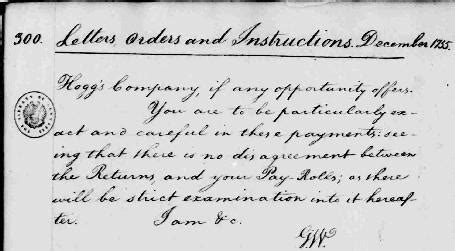 300. Letters Orders and Instructions. December 1755.
Hogg's Company, if any opportunity offers.
You are to be particularly ex-
act and careful in these payments: see-
ing that there is no disagreement between
the Returns, and your Pay-Rolls; as there
will be strict examination into it hereaf-
ter. I am &c.
GW.